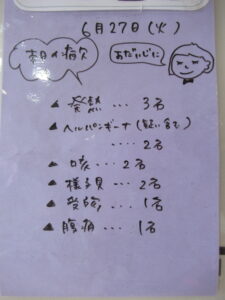 6月27日(火)
本日の病欠
おだいじに
▲ 発熱 ・・・ 3名
▲ ヘルパンギーナ (疑い含む)
・・・・ 2名
▲ 咳 ・・・ 2名
▲ 様子見 ・・・ 2名
▲ 受診 ・・・ 1名
▲ 腹痛 ・・・・ 1名